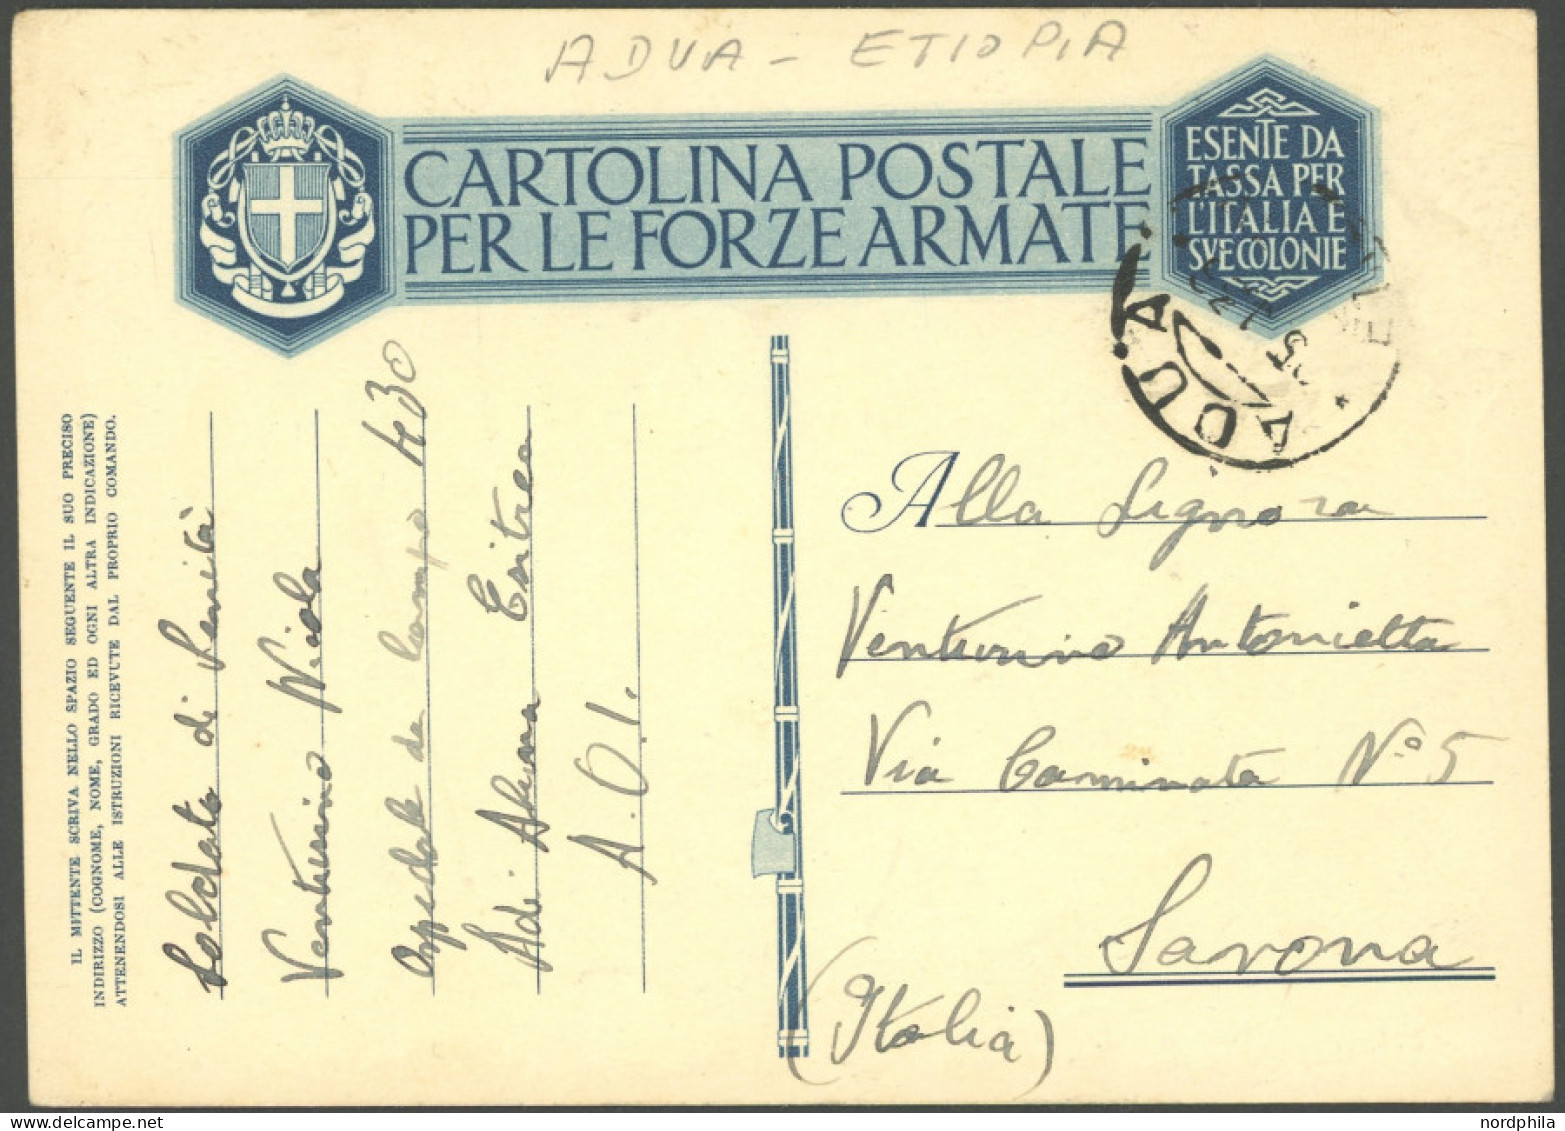 ADUA - ETIOPIA
CARTOLINA POSTALE
PER LE FORZE ARMATE
ESENTE DA
TASSA PER
L'ITALIA E
SVE COLONIE
ADUA
IL MITTENTE SCRIVA NELLO SPAZIO SEGUENTE IL SUO PRECISO
INDIRIZZO (COGNOME, NOME, GRADO ED OGNI ALTRA INDICAZIONE)
ATTENENDOSI ALLE ISTRUZIONI RICEVUTE DAL PROPRIO COMANDO.
Soldato di Sanità
Venturino Nicola
Ospedale da Campo 430
Adi Eritrea
A.O.I.
Alla Signora
Venturino Antonietta
Via Caminata N° 5
Savona
(Italia)
nordphila